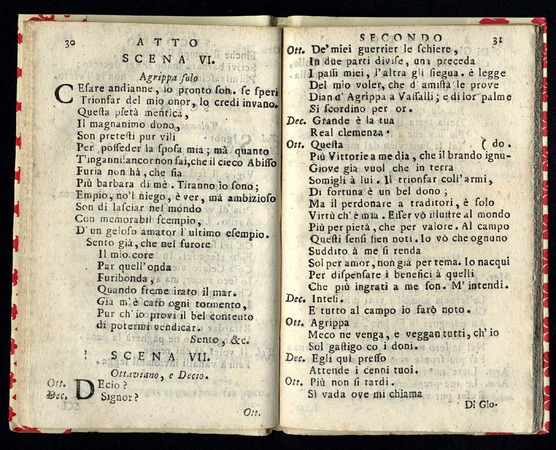 30 ATTO
SCENA VI.
Agrippa solo
CEsare andianne, io pronto son. se speri
Trionfar del mio onor, lo credi invano.
Questa pietà mentica,
Il magnanimo dono,
Son pretesti pur vili
Per posseder la sposa mia; mà quanto
T'inganni! ancor non sai, che il cieco Abisso
Furia non hà, che sia
Più barbara di me. Tiranno lo sono;
Empio, no'l niego, è ver, mà ambizioso
Son di lasciar nel mondo
Con memorabil scempio,
D'un geloso amator l'ultimo esempio.
Sento già, che nel furore
Il mio core
Par quell'onda
Furibonda,
Quando freme irato il mar.
Gia m'è caro ogni tormento,
Pur ch'io provi il bel contento
di potermi vendicar.
Sento, &c.
SCENA VII.
Ottaviano, e Decio.
Ott. DEcio?
Dec. Signor?
Ott.
SECONDO 31
Ott. De'miei guerrier le schiere,
In due parti divise, una preceda
I passi miei, l'altra gli siegua. è legge
Del mio voler, che d'amistà le prove
Dian d'Agrippa a Vasalli; e di lor palme
Si scordino per or.
Dec. Grande è la tua
Real clemenza.
Ott. Questa ( do.
Più Vittorie a me dia, che il brando ignu-
Giove già vuol che in terra
Somigli à lui. Il trionfar coll'armi,
Di fortuna è un bel dono;
Ma il perdonare a traditori, è solo
Virtù ch'è mia. Esser vò illustre al mondo
Più per pietà, che per valore. Al campo
Questi sensi sien noti. Io vò che ognuno
Suddito à me si renda
Sol per amor, non già per tema. Io nacqui
Per dispensare i benefici à quelli
Che più ingrati a me son. M'intendi.
Dec. Intesi.
E tutto al campo io farò noto.
Ott. Agrippa
Meco ne venga, e veggan tutti, ch'io
Sol gastigo co i doni.
Dec. Egli quì presso
Attende i cenni tuoi.
Ott. Più non si tardi.
Sì vada ove mi chiama
Di Glo-